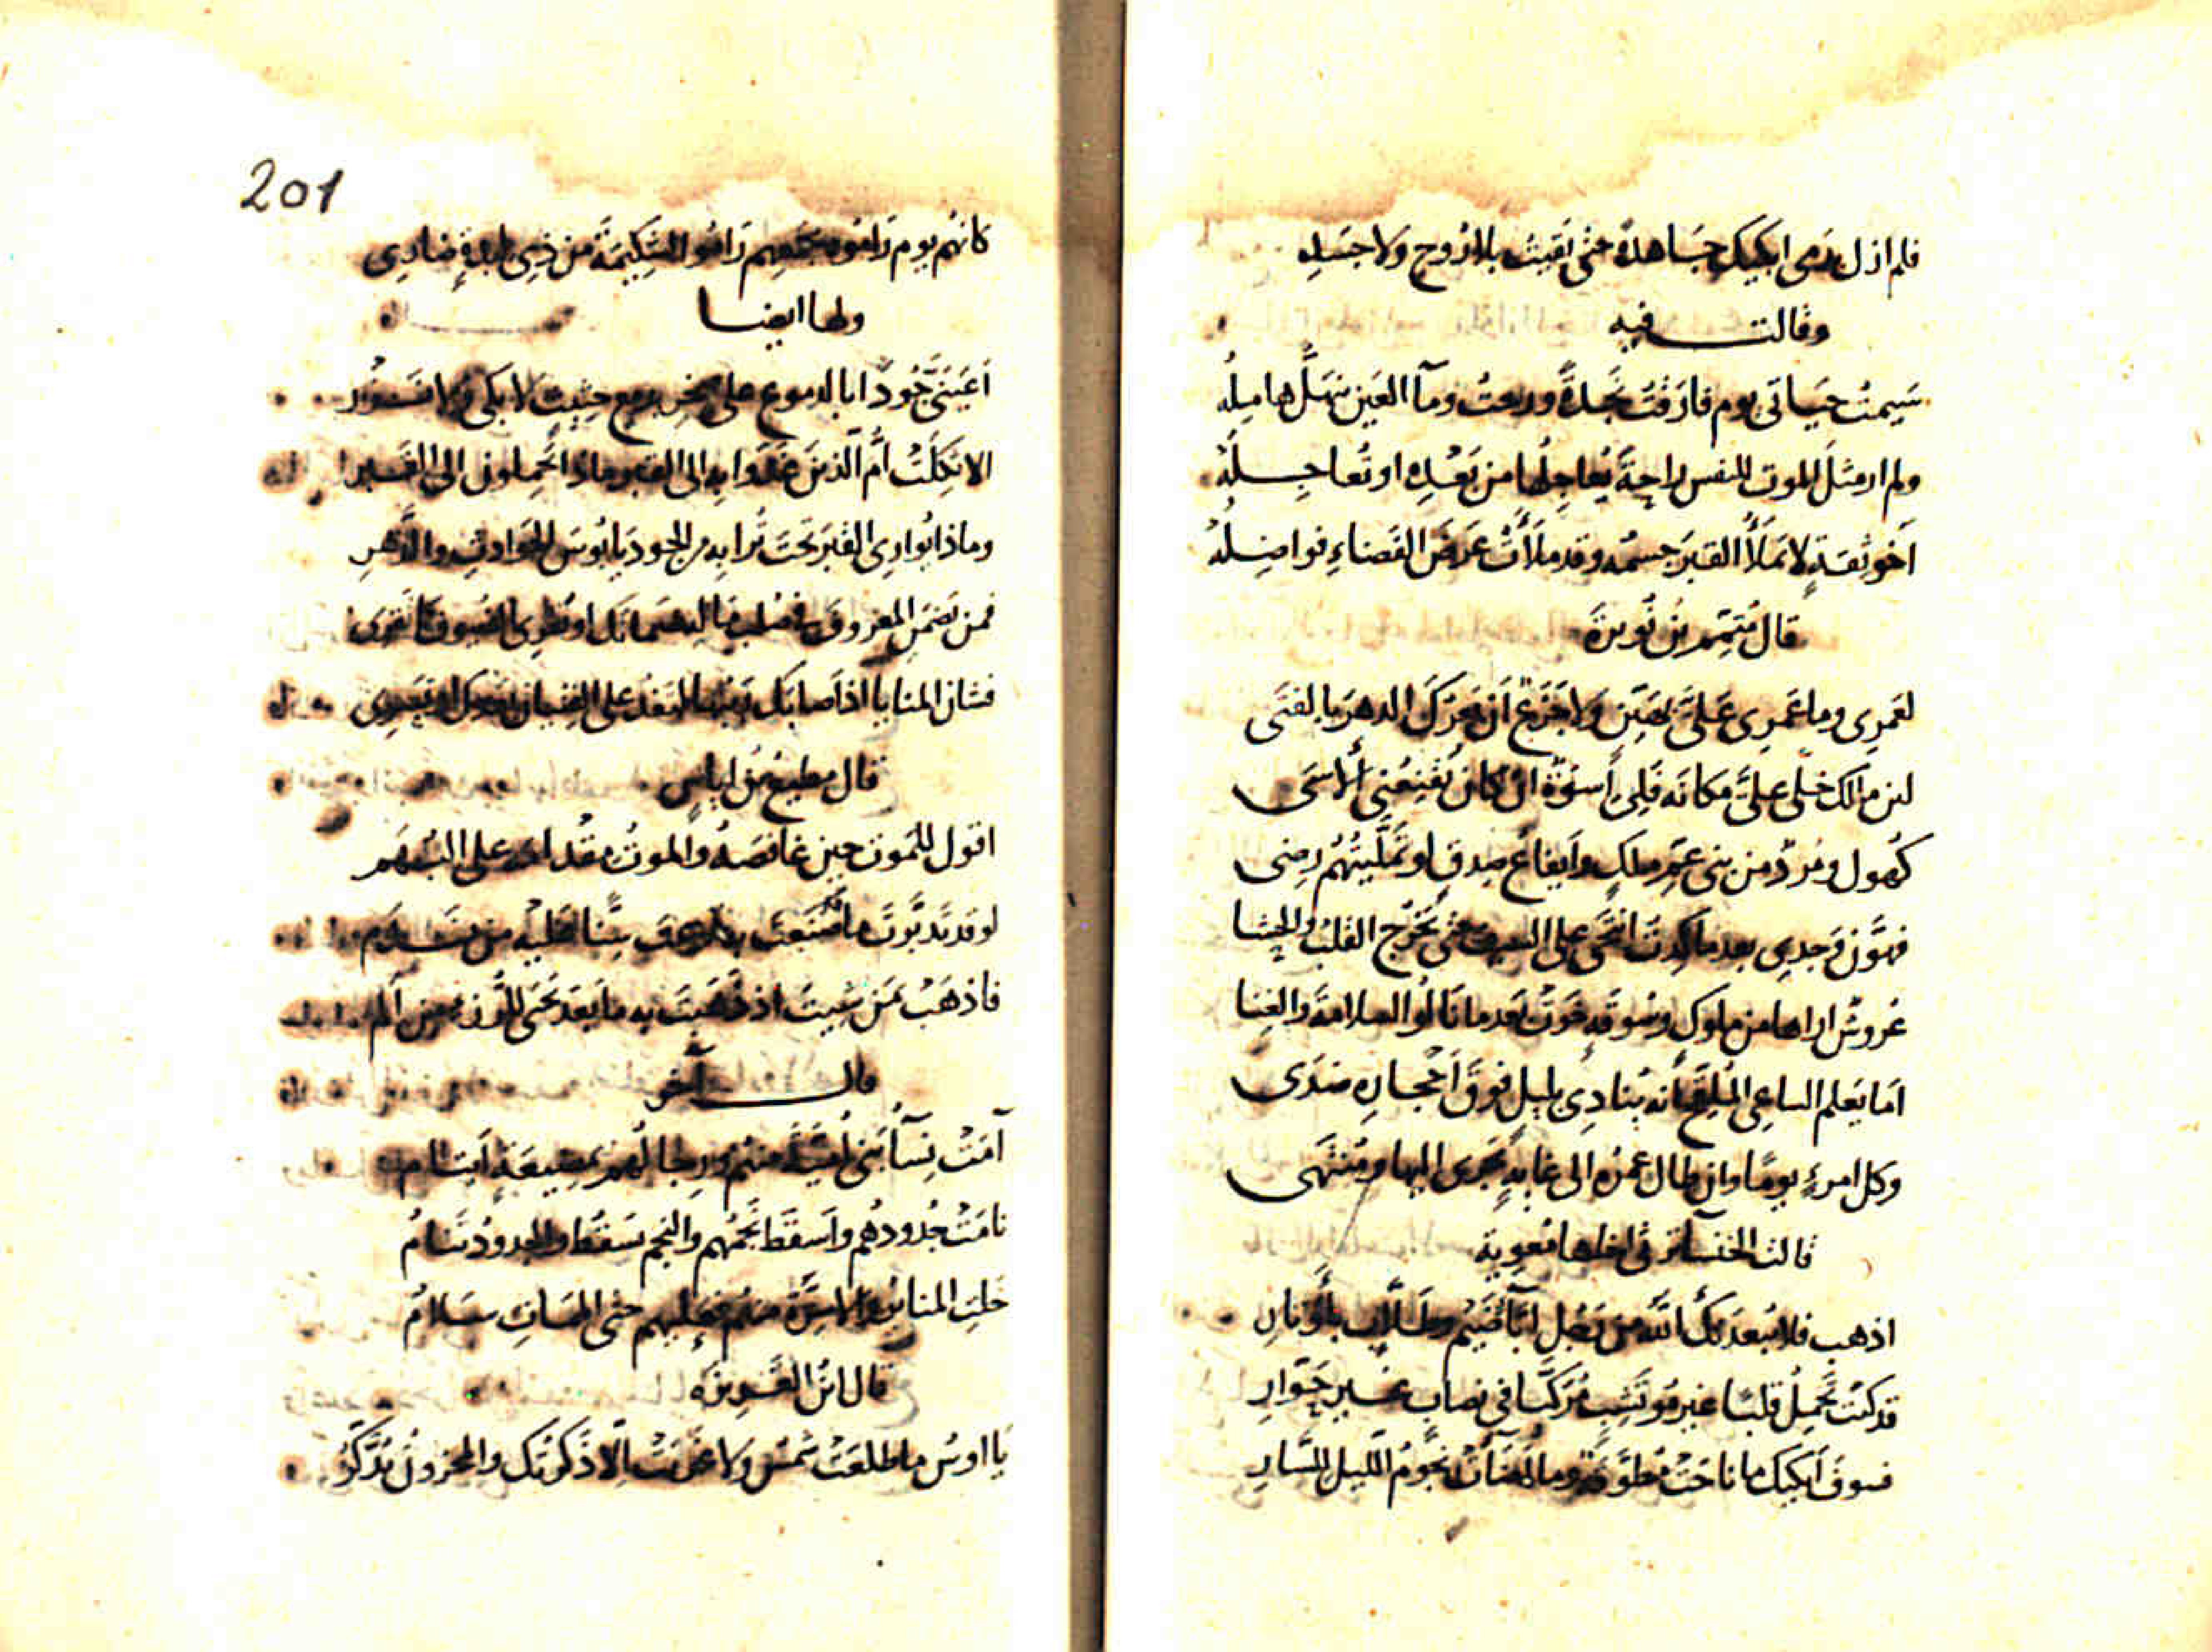 فلم ازل دمى ابكيك جاهدة حتى بقيت بلا روح ولا جسد
وقالت فيه
سيمت حياتى يوم فارقت نجدة ورحت ومآ العين ينهلّ هامله
ولم ار مثل الموت للنفس راحة يعاجلها من بعده او تعاجله
اخو ثقة لا تملأ القبر جسمه وقد ملأت عرض القضاء فواضله
قال متمم بن نويرة
لعمرى وما عمرى علىّ بهين ولا جزع ان يحرك الدهر بالفتى
لئن مالك خلى علىّ مكانه فلى اسوة ان كان ينفعنى الاسى
كهول ومرد من بنى عم ملك وايفاع صدق لو تمليتهم رضى
فهون وجدى بعد ما كدت انتحى على السيف حتى تخرج القلب والحشا
عروش اراها من ملوك وسوقة خوت بعد ما نالوا السلامة والغنا
اما يعلم الساعى انه ينادى بليل فوق احجاره صدى
وكل امرئ يوما وان طال عمره الى غاية يجرى اليها ومنتهى
قالت الخنسآء فى اخاها معوية
اذهب فلا يبعدنك الله من رجل ابآء ضيم وطلاب باوتار
قد كنت تحمل قلبا غير مؤتشب مركبا فى نصاب غير خوار
فسوف ابكيك ما ناحت مطوقة وما اضآت نجوم الليل للسار
201
كانهم يوم راموه بجمعهم راموا الشكيمة من ذى لبدة ضارى
ولها ايضا
اعينىّ جودا بالدموع على صخر
الا ثكلت ام الذين غدوا به الى القبر ماذا يحملون الى القبر
وماذا يوارى القبر تحت ترابه من الجود يا بوس الحوادث والدهر
فمن يضمن المعروف فى صلب ماله ضمانك او يقرى الضيوف كما تقرى
فشان المنايا اذ اصابك ريبها لتغد على الفتيان بعدك او تسرى
قال مطيع بن اياس
اقول للموت حين غافصه والموت مقدامه على البهم
لو قد تدبرت ما صنعت به قرعت سنا عليه من ندم
فاذهب بمن شيت اذ ذهبت به ما بعد يحيى للرزء من الم
قال آخر
آمت نسآ بنى امية منهم ورجالهم بمضيعة ايتام
نامت جدودهم واسقط نجمهم والنجم يسقط والجدود تنام
خلت المنابر والاسرة منهم فعليهم حتى الممات سلام
قال ابن
يا اوس ما طلعت شمس ولا غربت الا ذكرتك والمحزون يدّكر